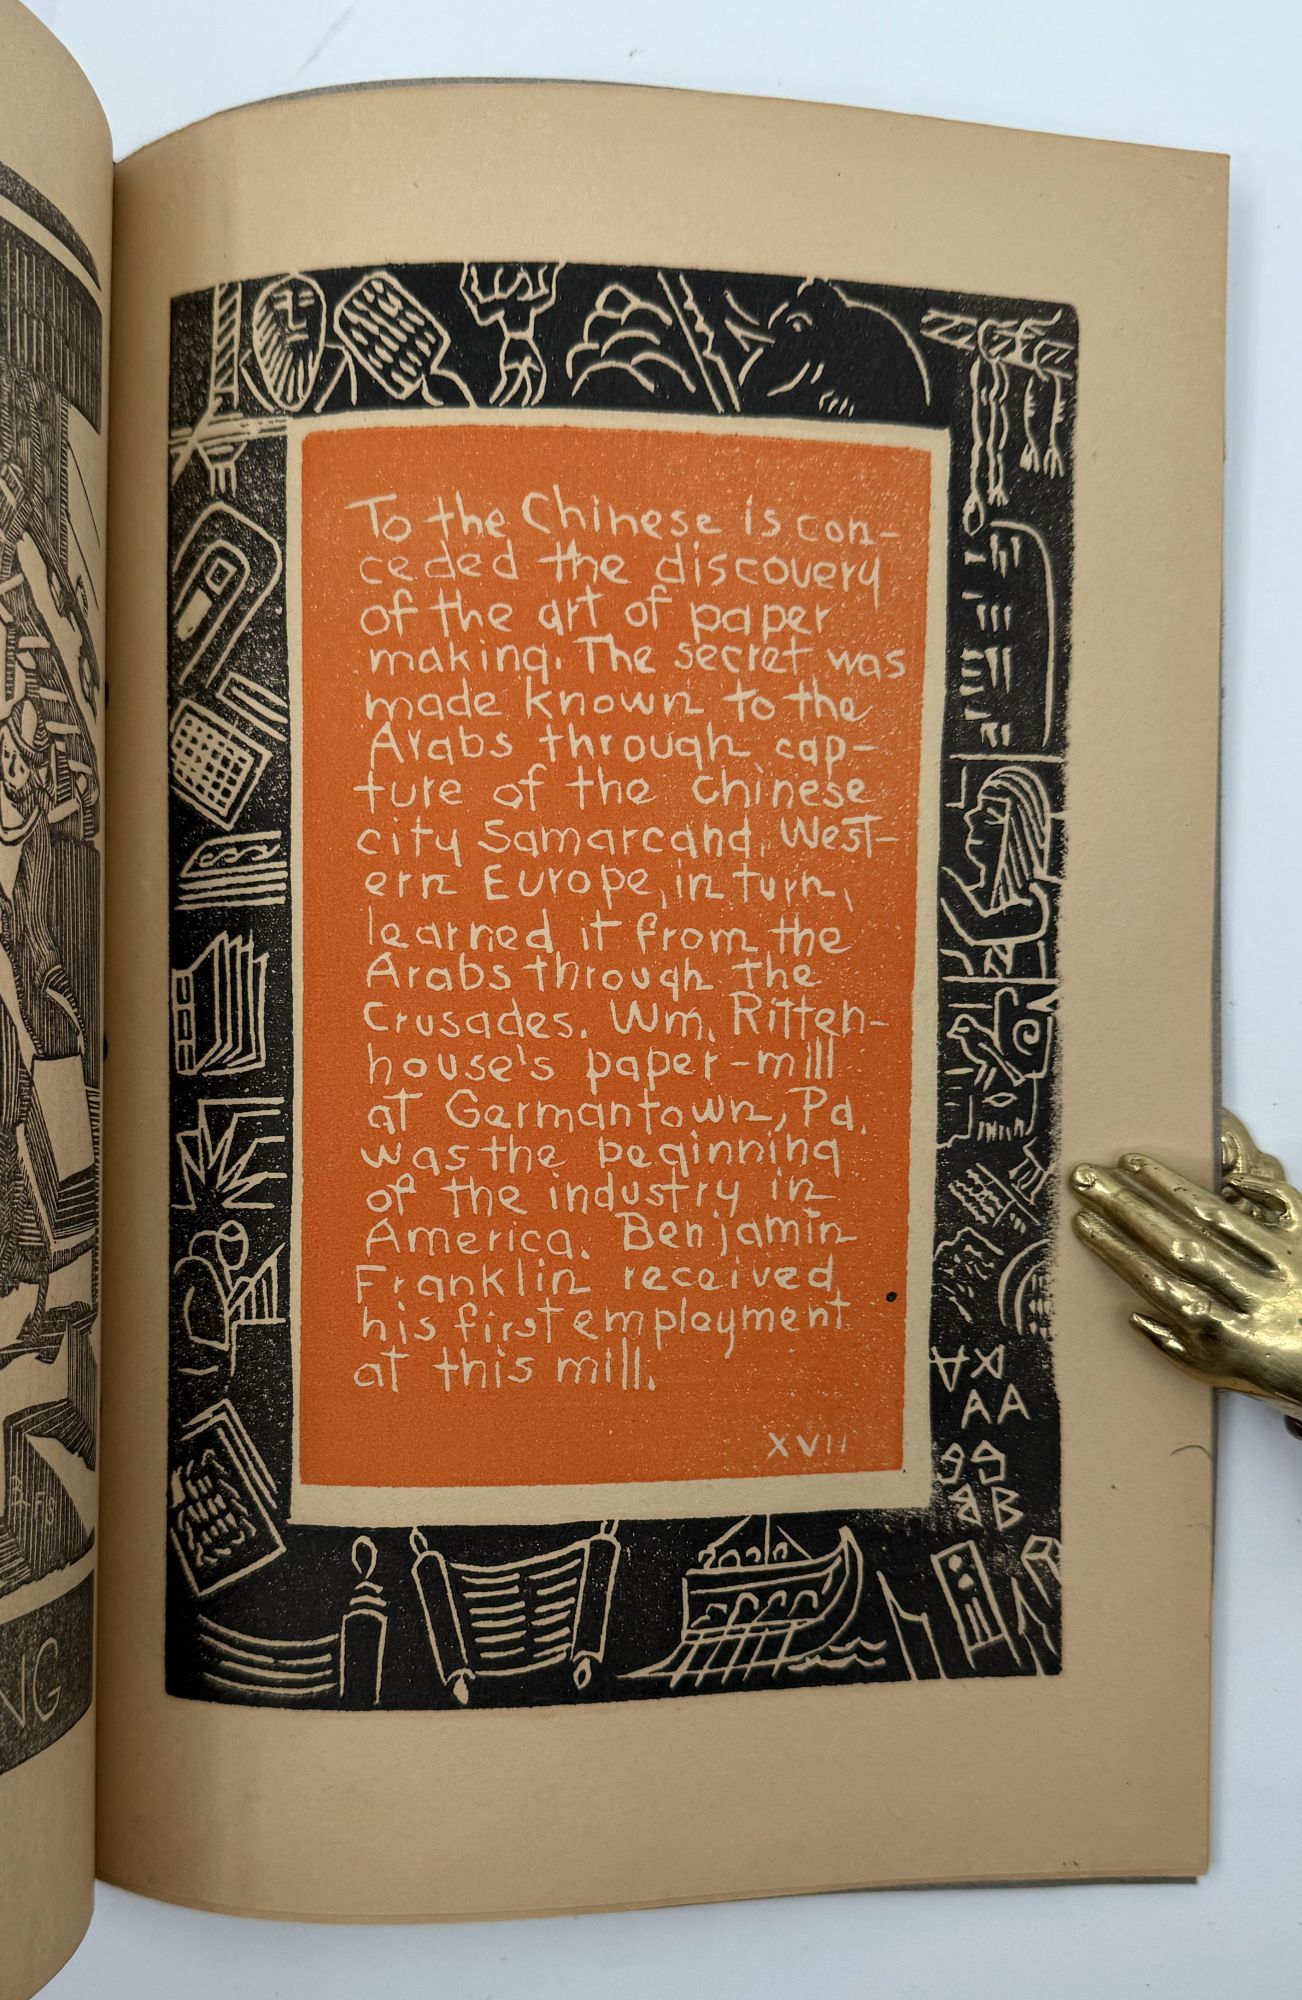 To the Chinese is con-
ceded the discovery
of the art of paper
making. The secret was
made known to the
Arabs through cap-
ture of the Chinese
city Samarcand. West-
ern Europe, in turn,
learned it from the
Arabs through the
Crusades. Wm. Ritten-
house's paper-mill
at Germantown, Pa.
was the beginning
of the industry in
America. Benjamin
Franklin received
his first employment
at this mill.
XVII
A A
B
NG